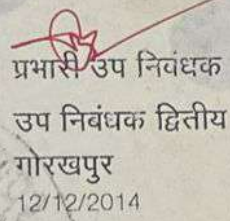 प्रभारी उप निबंधक
उप निबंधक द्वितीय
गोरखपुर
12/12/2014